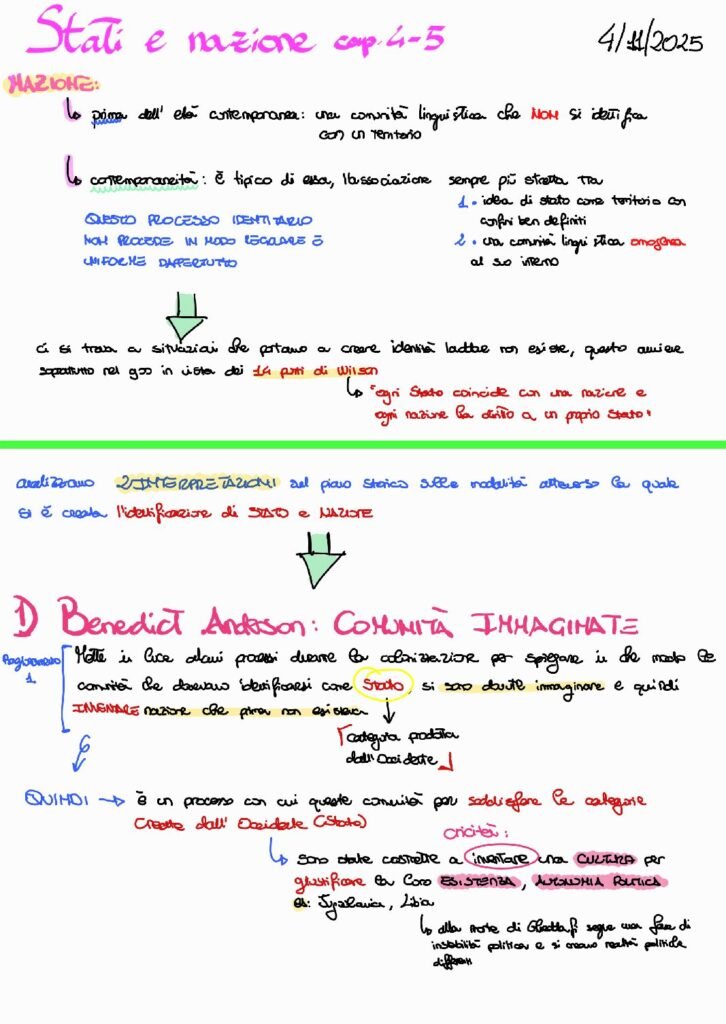 Stati e nazione cap. 4-5 4/11/2025
NAZIONE:
↳ prima dell' età contemporanea: una comunità linguistica che NON si identifica
con un territorio
↳ contemporaneità: è tipico di essa, l'associazione sempre più stretta tra
1. idea di stato come territorio con
confini ben definiti
2. una comunità linguistica omogenea
al suo interno
QUESTO PROCESSO IDENTITARIO
NON PROCEDE IN MODO REGOLARE E
UNIFORME DAPPERTUTTO
ci si trova a situazioni che portano a creare identità laddove non esiste, questo avviene
soprattutto nel 900 in vista dei 14 punti di Wilson
↳ "ogni Stato coincide con una nazione e
ogni nazione ha diritto a un proprio Stato"
analizziamo 2 INTERPRETAZIONI sul piano storico sulle modalità attraverso la quale
si è creata l'identificazione di STATO e NAZIONE
1) Benedict Anderson: COMUNITÀ IMMAGINATE
Ragionamento
1.
Mette in luce alcuni processi durante la colonizzazione per spiegare in che modo le
comunità che dovevano identificarsi come Stato, si sono dovute immaginare e quindi
INVENTARE nazione che prima non esisteva
categoria prodotta
dall'Occidente
QUINDI → è un processo con cui queste comunità per soddisfare le categorie
create dall' Occidente (Stato)
criticità:
↳ sono state costrette a inventare una CULTURA per
giustificare la loro ESISTENZA, AUTONOMIA POLITICA
es: Jugoslavia, Libia
↳ alla morte di Gheddafi segue una fase di
instabilità politica e si creano realtà politiche
differenti